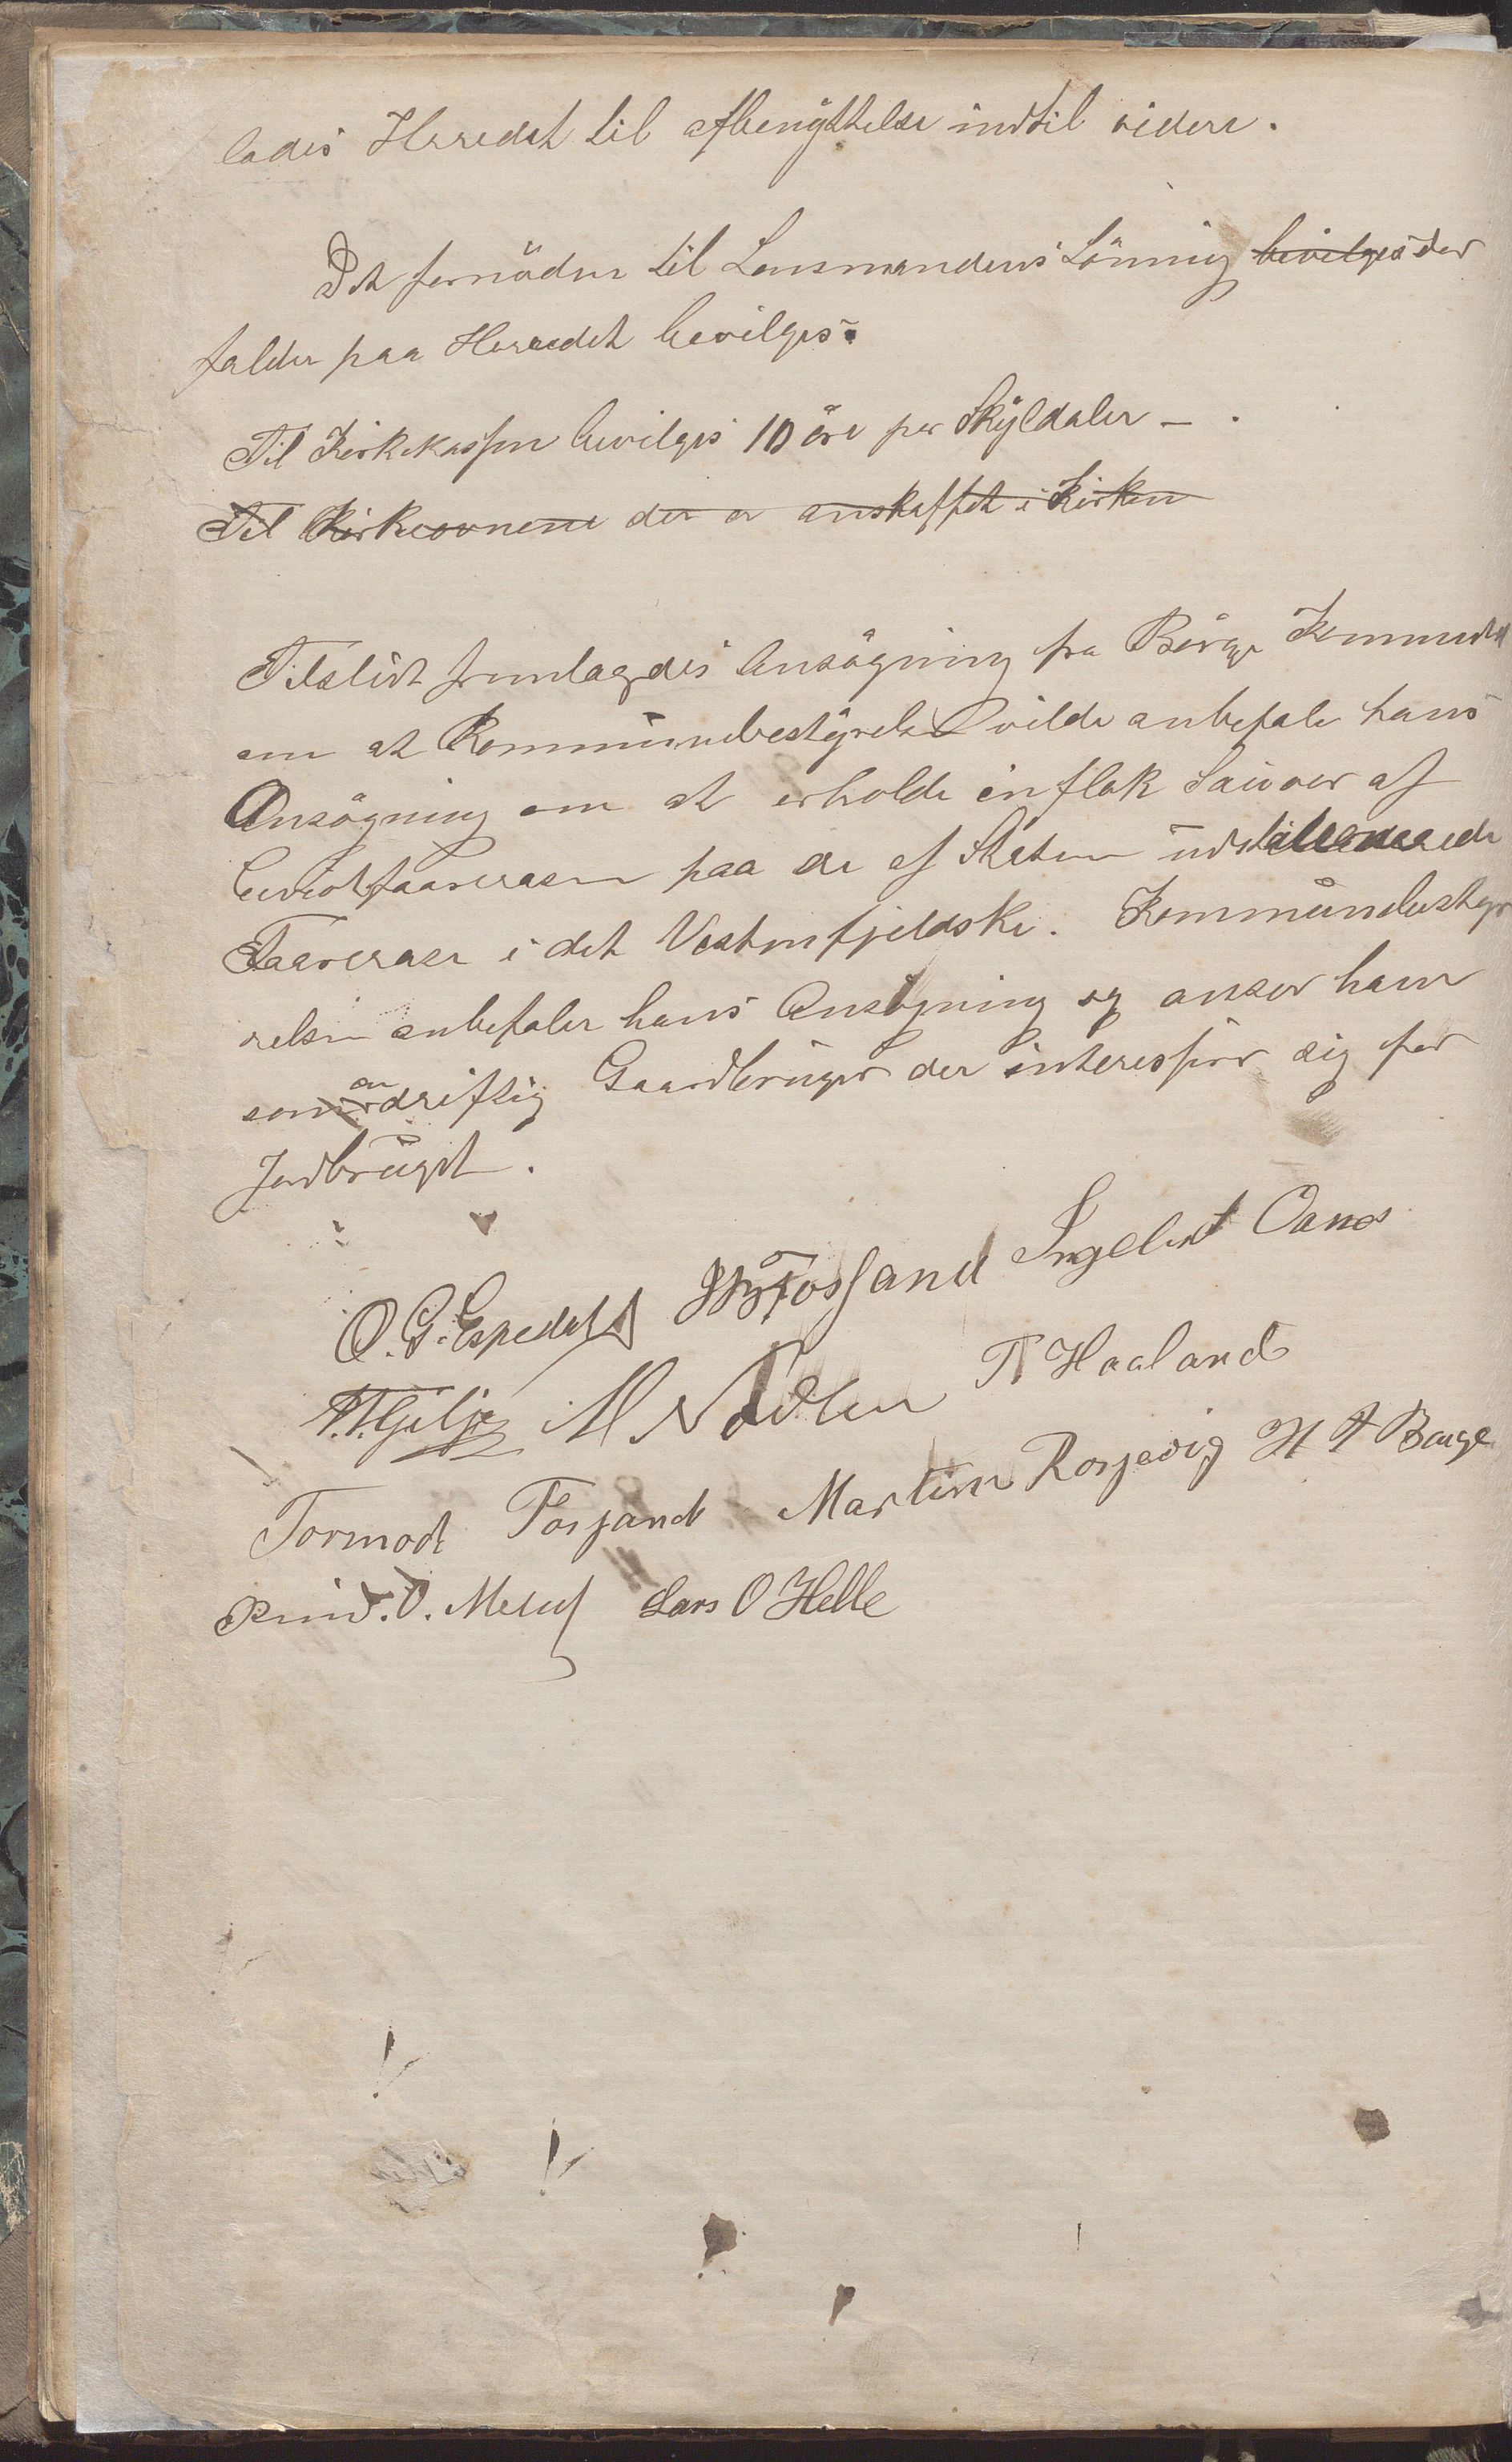 lades Heredet til afbenyttelse indtil videre.
Det fornödne til Lensmandens Lönning bevilges der
falder paa Herredet bevilges.
Til Kirkekassen bevilges 10 öre per Skylddaler —.
Til Kirkeovnene der er anskaffet i Kirken
Tilslidt fremlagdes Ansögning fra Börge
om at Kommunebestyrelse vilde anbefale hans
Ansögning om at erholde en flok Sauer af
Cheviotfaarerasen paa de af Staten
Faarerase i det Vestenfjeldske. Kommunebesty
relsen anbefaler hans Ansögning og anser ham
som en driftig Gaardbruger der interesserer sig for
Jordbruget.
O. G. Espedal Fossand Ingebret Oanes
T. T. Gilje M Nådland T Haaland
Tormod Forsand Martin Rosjevig H T Berge
O. Meling Lars O Helle